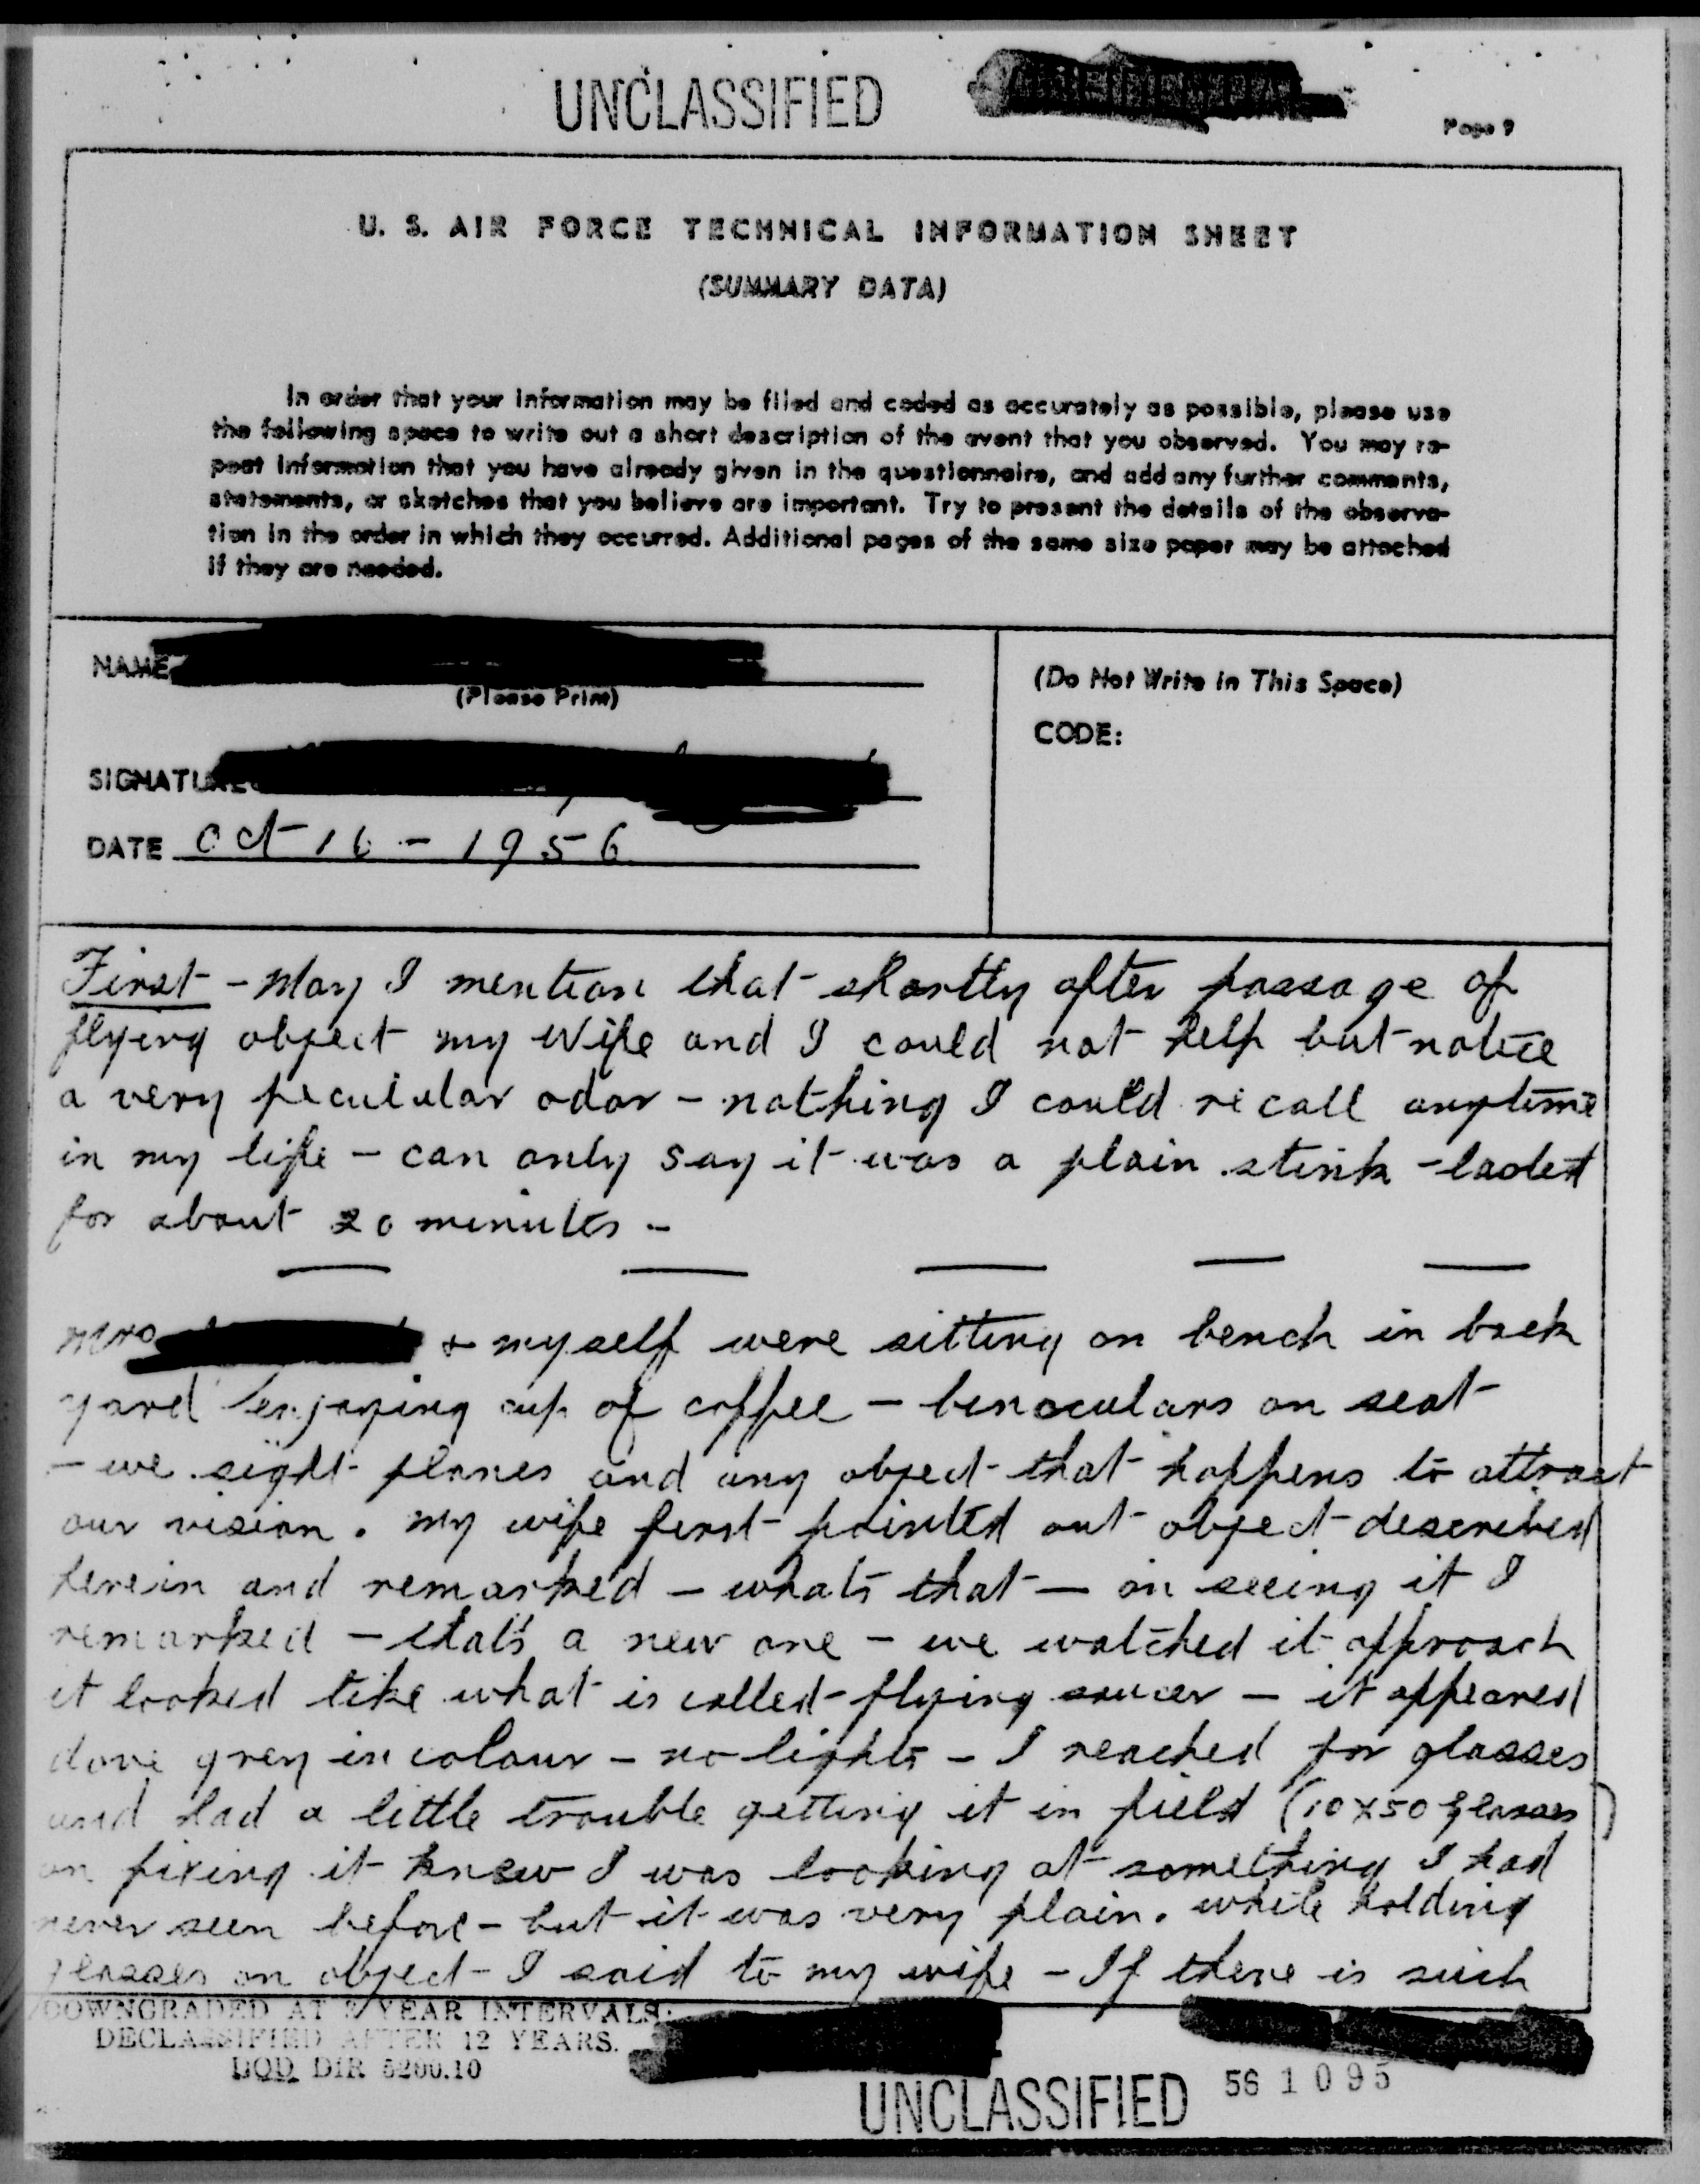 UNCLASSIFIED
Page 9
U. S. AIR FORCE TECHNICAL INFORMATION SHEET
(SUMMARY DATA)
In order that your information may be filed and coded as accurately as possible, please use
the following space to write out a short description of the event that you observed. You may re-
peat information that you have already given in the questionnaire, and add any further comments,
statements, or sketches that you believe are important. Try to present the details of the observa-
tion in the order in which they occurred. Additional pages of the same size paper may be attached
if they are needed.
NAME
(Please Print)
SIGNATURE
DATE Oct 16 - 1956
(Do Not Write in This Space)
CODE:
First - May I mention that shortly after passage of
flying object my Wife and I could not help but notice
a very peculular odor - nothing I could recall anytime
in my life - can only say it was a plain stink - lasted
for about 20 minutes -
Mrs & myself were sitting on bench in back
yard enjoying cup of coffee - binoculars on seat
- we sight planes and any object that happens to attract
our vision. my wife first pointed out object described
herein and remarked - whats that - on seeing it I
remarked - thats a new one - we watched it approach
it looked like what is called flying saucer - it appeared
dove grey in colour - no lights - I reached for glasses
and had a little trouble getting it in field (10x50 glasses)
on fixing it knew I was looking at something I had
never seen before - but it was very plain. while holding
glasses on object - I said to my wife - If there is such
DOWNGRADED AT 3 YEAR INTERVALS;
DECLASSIFIED AFTER 12 YEARS.
DOD DIR 5200.10
UNCLASSIFIED
56 1095